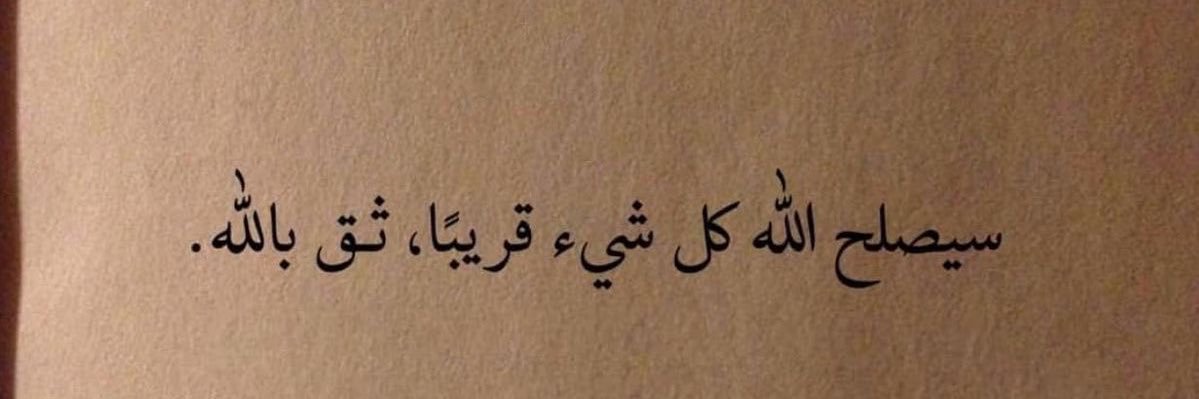 سيصلح الله كل شيء قريبًا، ثـق بالله.